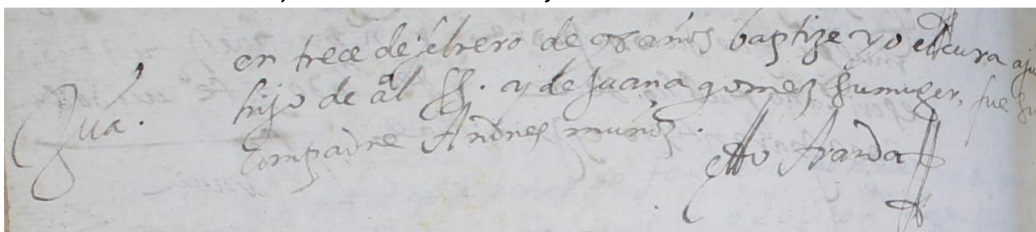 en trece de febrero de 98 años baptize yo el cura aju
Jua.
hijo de al SS. y de juana gomez su muger, fue su
Compadre Andres muñoz.
Aranda